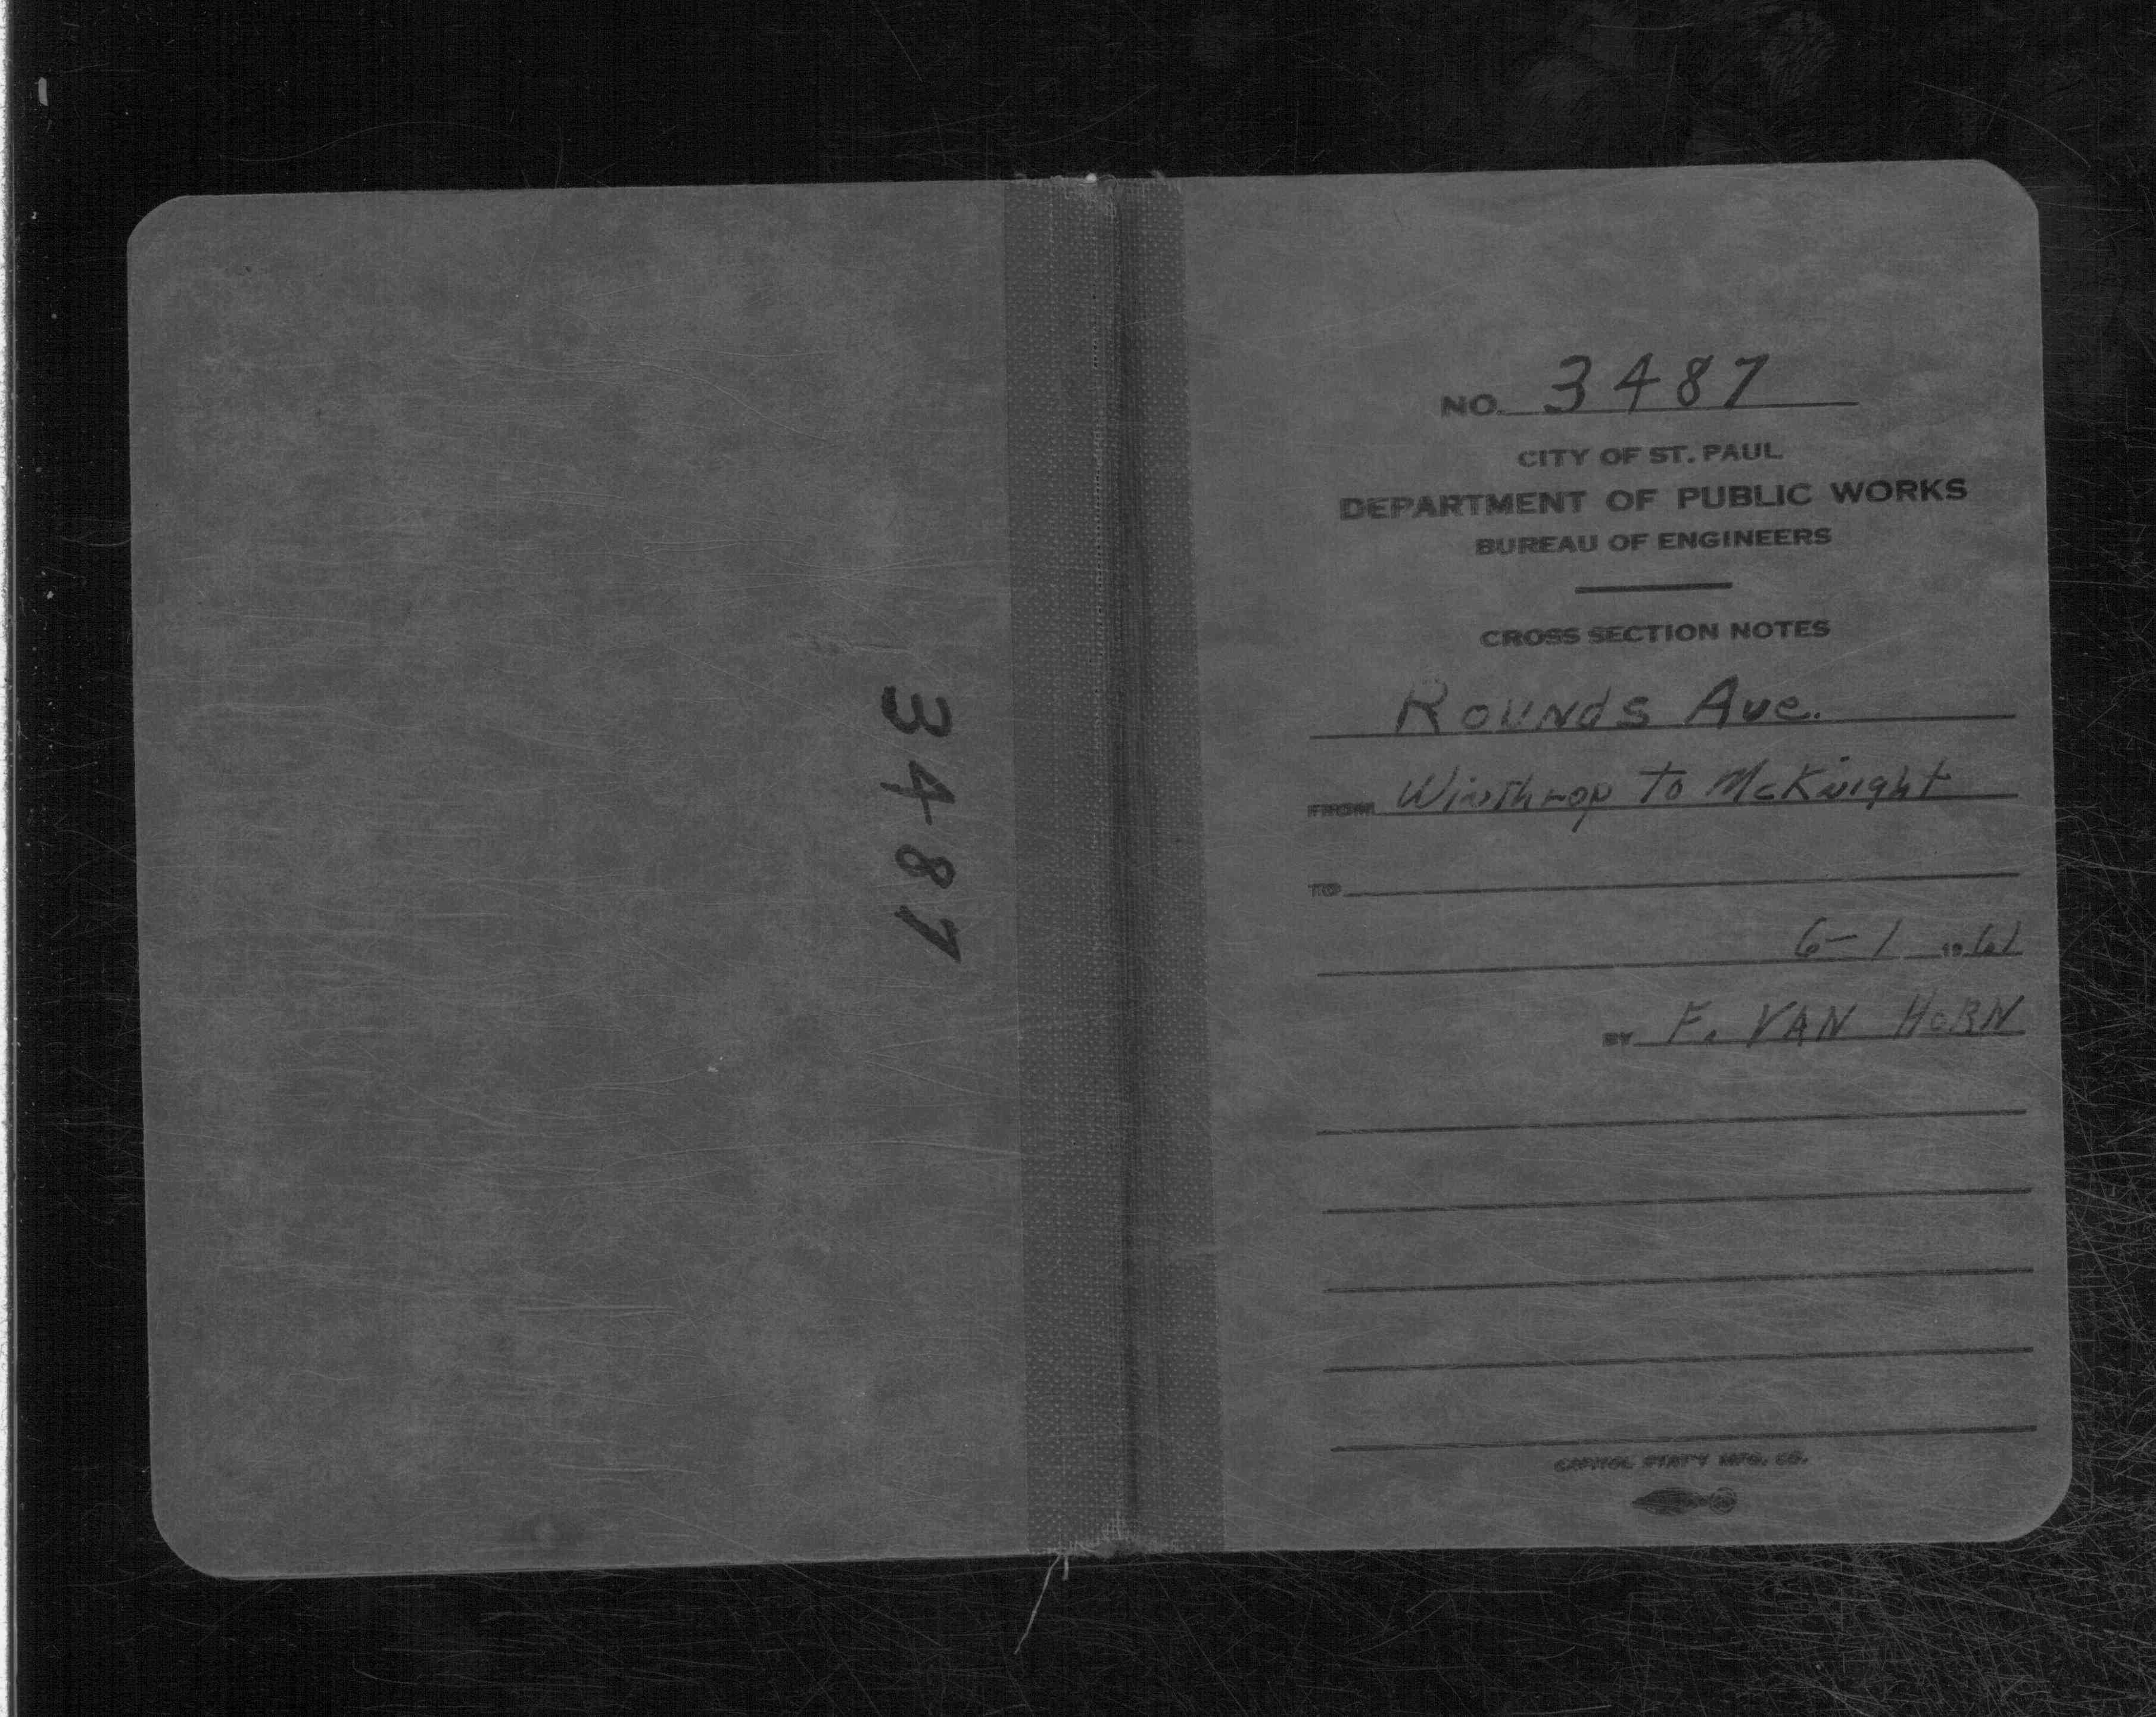 3487
NO. 3487
CITY OF ST. PAUL
DEPARTMENT OF PUBLIC WORKS
BUREAU OF ENGINEERS
CROSS SECTION NOTES
Rounds Ave.
FROM Winthrop to McKnight
TO
6-1 1961
BY F. VAN HORN
CAPITOL STAT'Y MFG. CO.